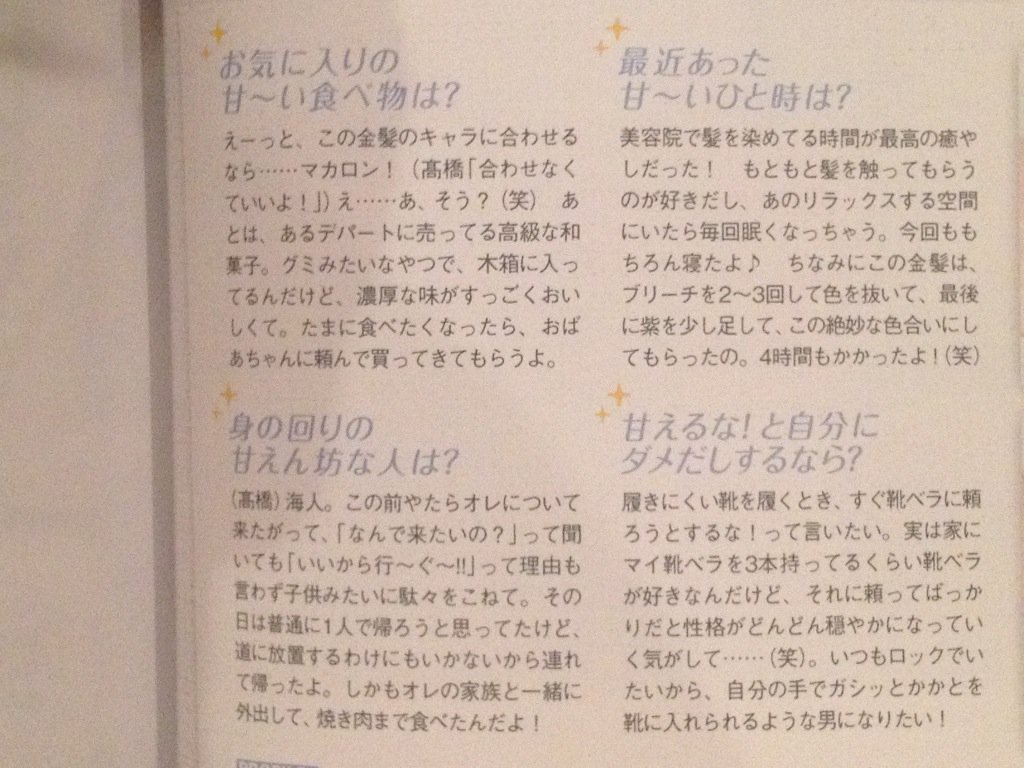 お気に入りの
甘〜い食べ物は？
えーっと、この金髪のキャラに合わせる
なら……マカロン！（髙橋「合わせなく
ていいよ！」）え……あ、そう？（笑）　あ
とは、あるデパートに売ってる高級な和
菓子。グミみたいなやつで、木箱に入っ
てるんだけど、濃厚な味がすっごくおい
しくて。たまに食べたくなったら、おば
あちゃんに頼んで買ってきてもらうよ。
身の回りの
甘えん坊な人は？
（髙橋）海人。この前やたらオレについて
来たがって、「なんで来たいの？」って聞
いても「いいから行〜ぐ〜!!」って理由も
言わず子供みたいに駄々をこねて。その
日は普通に1人で帰ろうと思ってたけど、
道に放置するわけにもいかないから連れ
て帰ったよ。しかもオレの家族と一緒に
外出して、焼き肉まで食べたんだよ！
最近あった
甘〜いひと時は？
美容院で髪を染めてる時間が最高の癒や
しだった！　もともと髪を触ってもらう
のが好きだし、あのリラックスする空間
にいたら毎回眠くなっちゃう。今回もも
ちろん寝たよ♪　ちなみにこの金髪は、
ブリーチを2〜3回して色を抜いて、最後
に紫を少し足して、この絶妙な色合いにし
てもらったの。4時間もかかったよ！（笑）
甘えるな！と自分に
ダメだしするなら？
履きにくい靴を履くとき、すぐ靴ベラに頼
ろうとするな！って言いたい。実は家に
マイ靴ベラを3本持ってるくらい靴ベラ
が好きなんだけど、それに頼ってばっか
りだと性格がどんどん穏やかになってい
く気がして……（笑）。いつもロックでい
たいから、自分の手でガシッとかかとを
靴に入れられるような男になりたい！